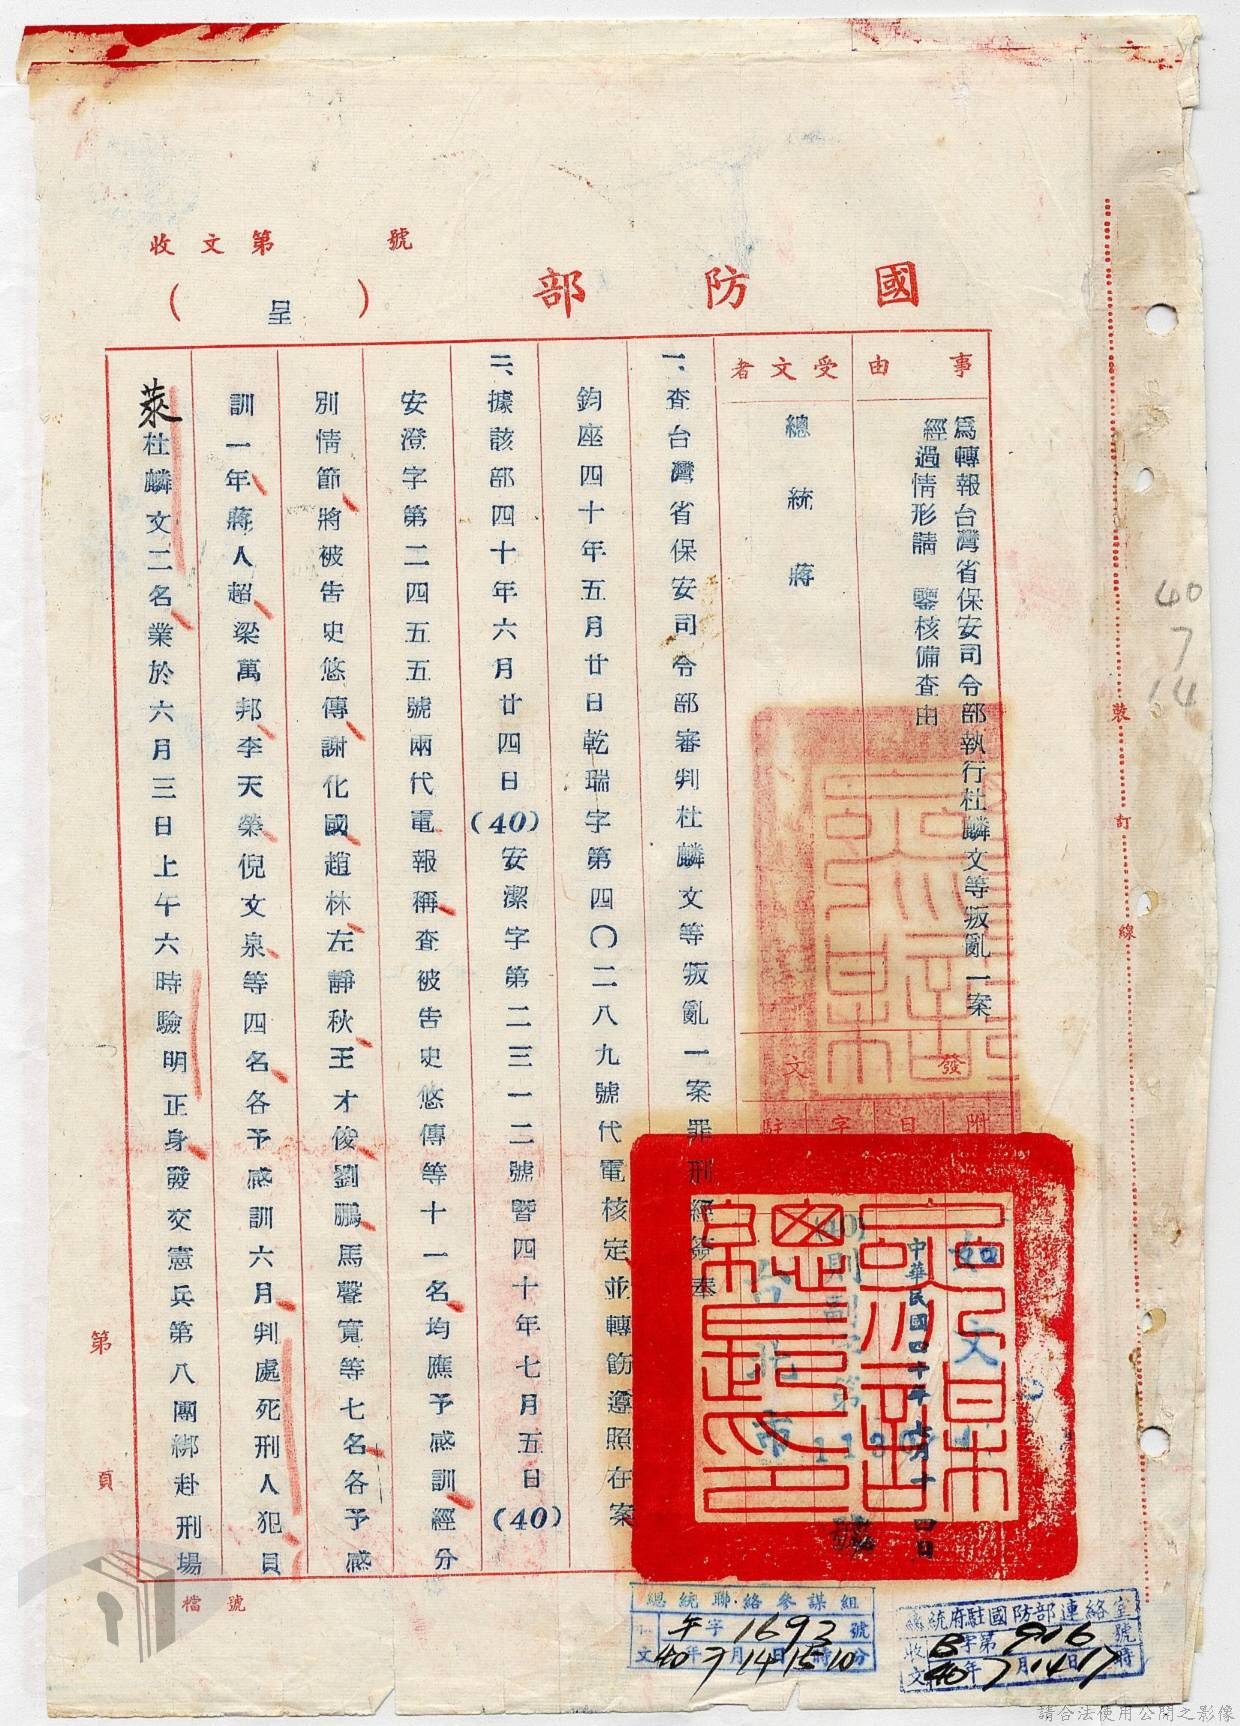 收文第　　號
國防部
（呈）
事由
為轉報台灣省保安司令部執行杜麟文等叛亂一案
經過情形請　鑒核備查由
受文者
總統蔣
發文
附
日
字
駐
如文
中華民國四十年七月十四日
台北市
一、查台灣省保安司令部審判杜麟文等叛亂一案罪刑經簽奉
鈞座四十年五月廿日乾瑞字第四〇二八九號代電核定並轉飭遵照在案
二、據該部四十年六月廿四日(40)安潔字第二三一二號暨四十年七月五日(40)
安澄字第二四五五號兩代電報稱查被告史悠傳等十一名均應予感訓經分
別情節將被告史悠傳謝化國趙林左靜秋王才俊劉鵬馬聲寬等七名各予感
訓一年蔣人超梁萬邦李天榮倪文泉等四名各予感訓六月判處死刑人犯員
萊杜麟文二名業於六月三日上午六時驗明正身發交憲兵第八團綁赴刑場
第　　頁
檔號
裝訂線
40
7
14
總統聯絡參謀組
午字1693號
文40年7月14日15時10分
總統府駐國防部連絡室
收文B字第916號
40年7月14日17時
請合法使用公開之影像